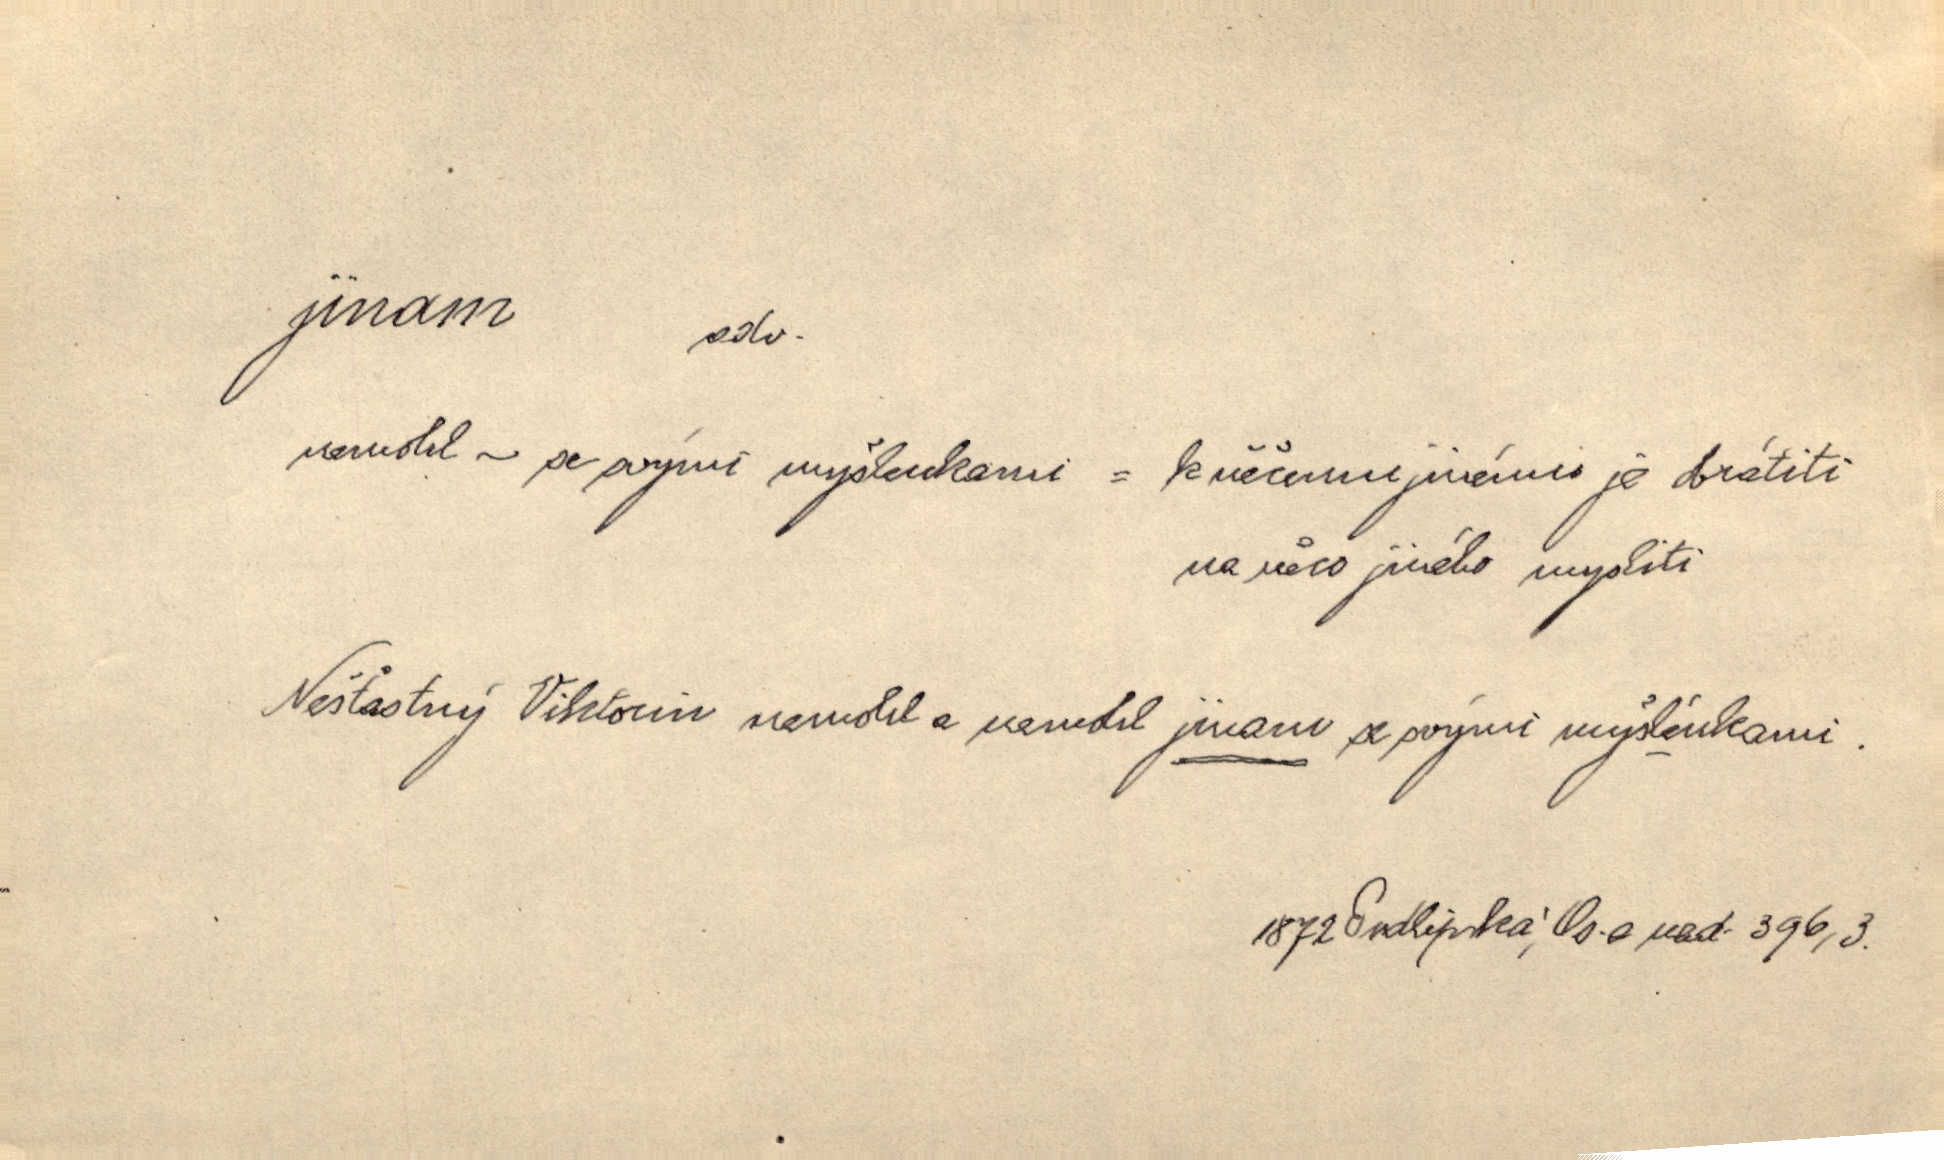 jinam adv.
nemohl ~ se svými myšlenkami = k něčemu jinému je obrátiti
na něco jiného mysliti
Nešťastný Viktorin nemohl a nemohl jinam se svými myšlénkami.
1872 Podlipská, Os. a nad. 396, 3.